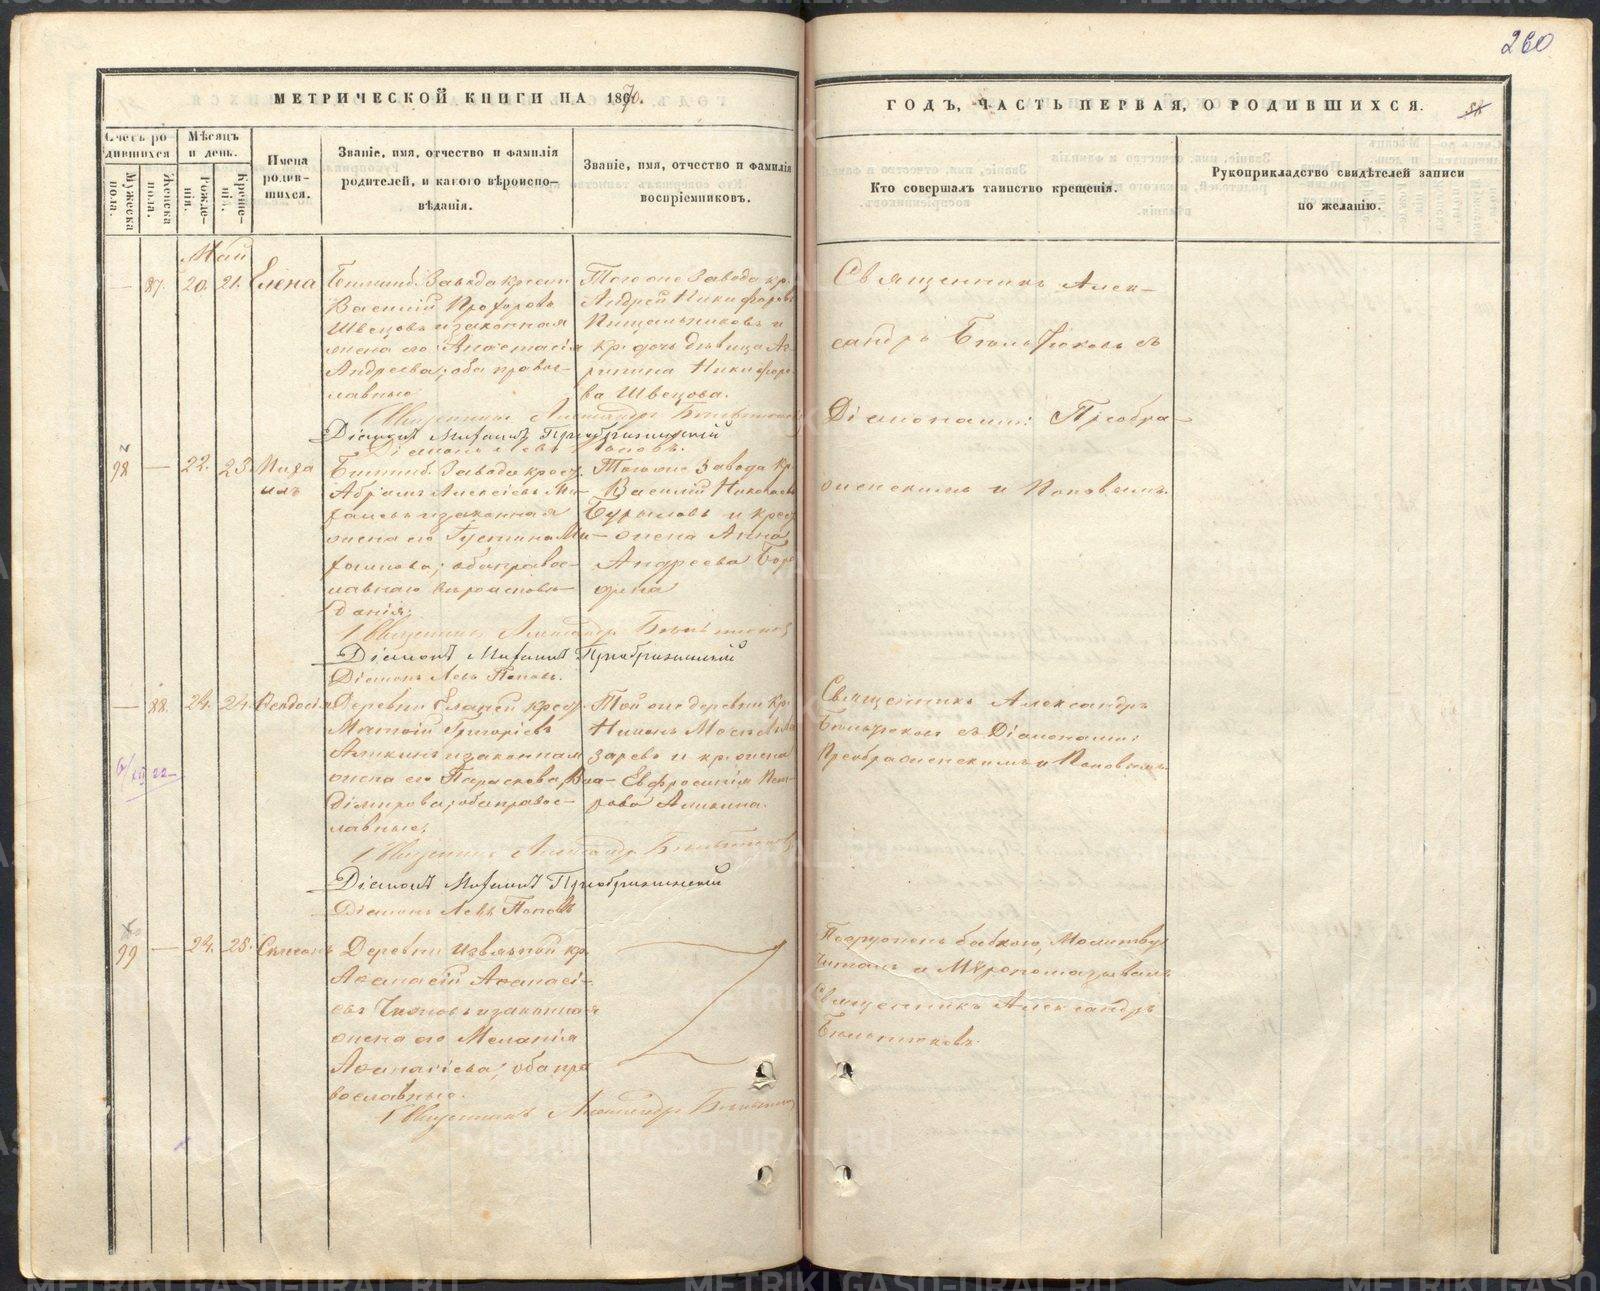 260
МЕТРИЧЕСКОЙ КНИГИ НА 1870.
ГОДЪ, ЧАСТЬ ПЕРВАЯ, О РОДИВШИХСЯ.
Счетъ ро
дившихся
Мужеска
пола.
Женска
пола.
Мѣсяцъ
и день.
Рожде-
нія.
Креще-
нія.
Имена
родив-
шихся.
Званіе, имя, отчество и фамилія
родителей, и какого вѣроиспо-
вѣданія.
Званіе, имя, отчество и фамилія
воспріемниковъ.
Кто совершалъ таинство крещенія.
Рукоприкладство свидѣтелей записи
по желанію.
Май
— 87. 20. 21. Елена
Завода крест.
Василій Прохоровъ
Швецовъ и законная
жена его Анастасія
Андреева; оба правос-
лавные
Того же Завода кр.
Андрей Никифоровъ
Пищальниковъ и
кр. дочь дѣвица Аг-
рипина Никифоро-
ва Швецова.
Священникъ Алек-
сандръ съ
Діаконами: Преобра-
женскимъ и Поповымъ.
Священникъ Александръ
Діаконъ Михаилъ Преображенскій
Діаконъ Левъ Поповъ.
98 — 22. 23. Миха
илъ
Завода крест.
Абрамъ Алексѣевъ
и законная
жена его Устинья
оба правос-
лавнаго вѣроисповѣ-
данія;
Того же Завода кр.
Василій Николаевъ
Бурыловъ и крест.
жена Анна
Андреева
Священникъ Александръ
Діаконъ Михаилъ Преображенскій
Діаконъ Левъ Поповъ.
— 88. 24. 24. Ѳеодосія
Деревни Еланей крест.
Матвій Григорьевъ
Аликинъ и законная
жена его Параскева Вла-
димірова; оба правос-
лавные;
Той же деревни кр.
Никонъ
заревъ и кр. жена
Евфросинія Пет-
рова Аликина.
Священникъ Александръ
съ Діаконами:
Преображенскимъ и Поповымъ.
Священникъ Александръ
Діаконъ Михаилъ Преображенскій
Діаконъ Левъ Поповъ
99 — 24. 25. Симеонъ
Деревни кр.
Аѳанасій Аѳанасі-
евъ и законная
жена его Меланія
Аѳанасіева; оба пра
вославные.
Погруженъ бабкою, Молитву
читалъ и Мѵропомазывалъ
Священникъ Александръ
Священникъ Александръ
METRIKI.GASO-URAL.RU